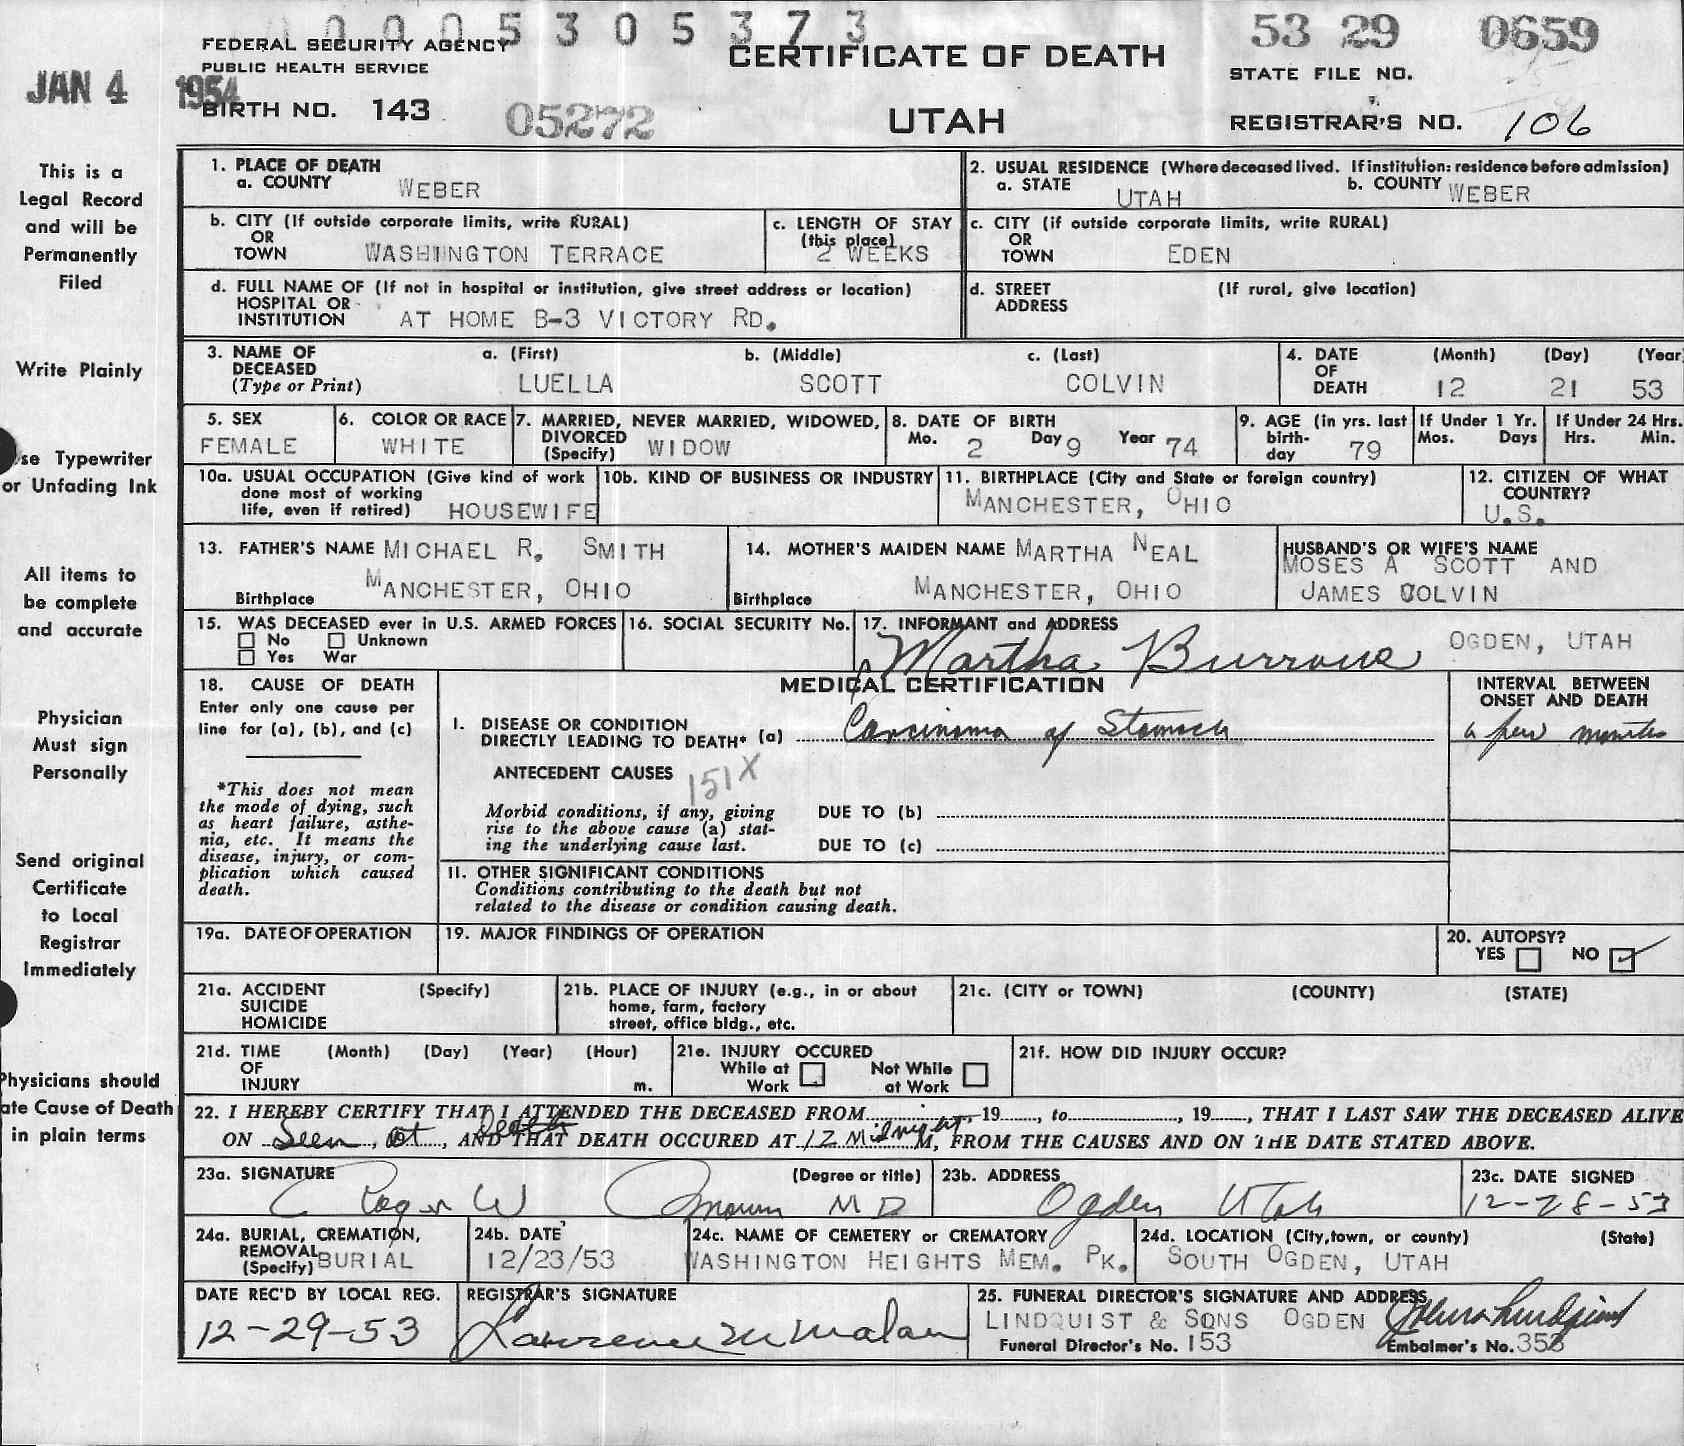 0 0 0 5 3 0 5 3 7 3
53 29 0659
FEDERAL SECURITY AGENCY
PUBLIC HEALTH SERVICE
CERTIFICATE OF DEATH
STATE FILE NO.
JAN 4 1954
BIRTH NO. 143
05272
UTAH
REGISTRAR'S NO. 106
This is a
Legal Record
and will be
Permanently
Filed
Write Plainly
se Typewriter
or Unfading Ink
All items to
be complete
and accurate
Physician
Must sign
Personally
Send original
Certificate
to Local
Registrar
Immediately
Physicians should
ate Cause of Death
in plain terms
1. PLACE OF DEATH
a. COUNTY WEBER
2. USUAL RESIDENCE (Where deceased lived. If institution: residence before admission)
a. STATE UTAH b. COUNTY WEBER
b. CITY (If outside corporate limits, write RURAL)
OR
TOWN WASHINGTON TERRACE
c. LENGTH OF STAY
(this place)
2 WEEKS
c. CITY (if outside corporate limits, write RURAL)
OR
TOWN EDEN
d. FULL NAME OF (If not in hospital or institution, give street address or location)
HOSPITAL OR
INSTITUTION AT HOME B-3 VICTORY RD.
d. STREET (If rural, give location)
ADDRESS
3. NAME OF a. (First) b. (Middle) c. (Last)
DECEASED
(Type or Print) LUELLA SCOTT COLVIN
4. DATE (Month) (Day) (Year)
OF
DEATH 12 21 53
5. SEX
FEMALE
6. COLOR OR RACE
WHITE
7. MARRIED, NEVER MARRIED, WIDOWED,
DIVORCED
(Specify) WIDOW
8. DATE OF BIRTH
Mo. 2 Day 9 Year 74
9. AGE (in yrs. last
birth-
day 79
If Under 1 Yr.
Mos. Days
If Under 24 Hrs.
Hrs. Min.
10a. USUAL OCCUPATION (Give kind of work
done most of working
life, even if retired) HOUSEWIFE
10b. KIND OF BUSINESS OR INDUSTRY
11. BIRTHPLACE (City and State or foreign country)
MANCHESTER, OHIO
12. CITIZEN OF WHAT
COUNTRY?
U.S.
13. FATHER'S NAME MICHAEL R. SMITH
Birthplace MANCHESTER, OHIO
14. MOTHER'S MAIDEN NAME MARTHA NEAL
Birthplace MANCHESTER, OHIO
HUSBAND'S OR WIFE'S NAME
MOSES A SCOTT AND
JAMES COLVIN
15. WAS DECEASED ever in U.S. ARMED FORCES
No Unknown
Yes War
16. SOCIAL SECURITY No.
17. INFORMANT and ADDRESS
Martha Burrows OGDEN, UTAH
18. CAUSE OF DEATH
Enter only one cause per
line for (a), (b), and (c)
*This does not mean
the mode of dying, such
as heart failure, asthe-
nia, etc. It means the
disease, injury, or com-
plication which caused
death.
MEDICAL CERTIFICATION
INTERVAL BETWEEN
ONSET AND DEATH
I. DISEASE OR CONDITION
DIRECTLY LEADING TO DEATH* (a) Carcinoma of Stomach a few months
ANTECEDENT CAUSES 151X
Morbid conditions, if any, giving
rise to the above cause (a) stat-
ing the underlying cause last.
DUE TO (b)
DUE TO (c)
II. OTHER SIGNIFICANT CONDITIONS
Conditions contributing to the death but not
related to the disease or condition causing death.
19a. DATE OF OPERATION
19. MAJOR FINDINGS OF OPERATION
20. AUTOPSY?
YES NO ✓
21a. ACCIDENT (Specify)
SUICIDE
HOMICIDE
21b. PLACE OF INJURY (e.g., in or about
home, farm, factory
street, office bldg., etc.
21c. (CITY or TOWN) (COUNTY) (STATE)
21d. TIME (Month) (Day) (Year) (Hour)
OF
INJURY m.
21e. INJURY OCCURED
While at Not While
Work at Work
21f. HOW DID INJURY OCCUR?
22. I HEREBY CERTIFY THAT I ATTENDED THE DECEASED FROM, 19, to, 19, THAT I LAST SAW THE DECEASED ALIVE
ON Seen, at Death, AND THAT DEATH OCCURED AT 12 Midnight M, FROM THE CAUSES AND ON THE DATE STATED ABOVE.
23a. SIGNATURE (Degree or title)
Roger W M D
23b. ADDRESS
Ogden Utah
23c. DATE SIGNED
12-28-53
24a. BURIAL, CREMATION,
REMOVAL
(Specify) BURIAL
24b. DATE
12/23/53
24c. NAME OF CEMETERY or CREMATORY
WASHINGTON HEIGHTS MEM. PK.
24d. LOCATION (City, town, or county) (State)
SOUTH OGDEN, UTAH
DATE REC'D BY LOCAL REG.
12-29-53
REGISTRAR'S SIGNATURE
Lawrence M Malan
25. FUNERAL DIRECTOR'S SIGNATURE AND ADDRESS
LINDQUIST & SONS OGDEN
Funeral Director's No. 153 Embalmer's No. 353